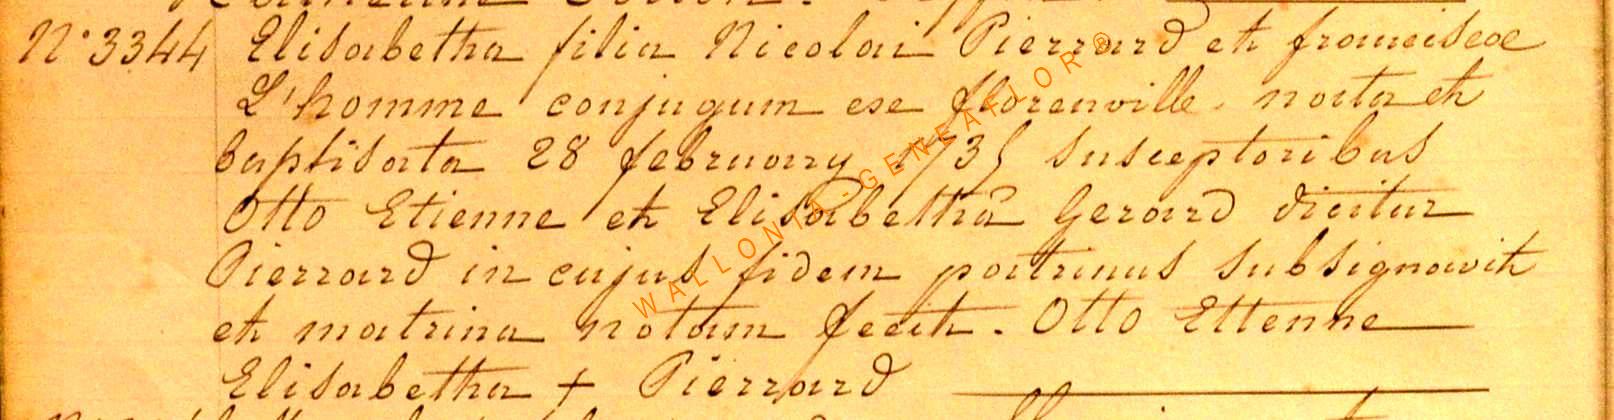 N° 3344 Elisabetha filia Nicolai Pierrard et franciscae
L'homme conjugum ex florenville. nata et
baptisata 28 february 173 susceptoribus
Otto Etienne et Elisabetha Gerard dicitur
Pierrard in cujus fidem patrinus subsignavit
et matrina notam fecit. Otto Ettenne
Elisabetha + Pierrard
WALLONIA-GENEAFLOR®